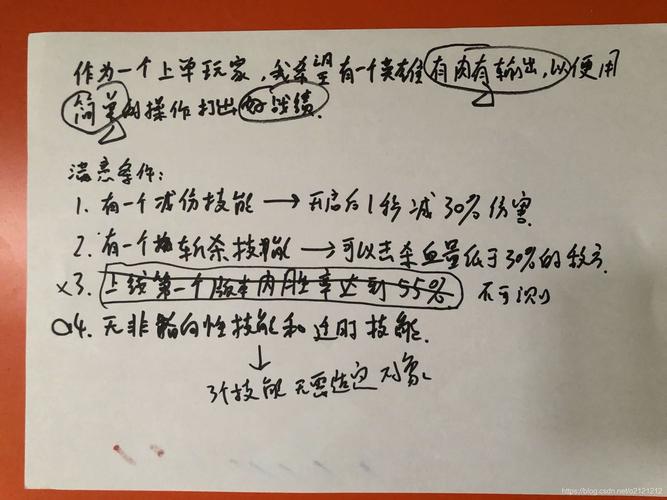 作为一个上单玩家，我希望有一个英雄有肉有输出，以便用
简单的操作打出好战绩.
满意条件：
1. 有一个减伤技能 → 开启后1秒减30%伤害
2. 有一个斩杀技能 → 可以击杀血量低于30%的敌方.
x3. 上线第一个版本内胜率达到55% 不可测
4. 无非指向性技能和延时技能.
↓
3个技能无需 对象
https://blog.csdn.net/o2121212